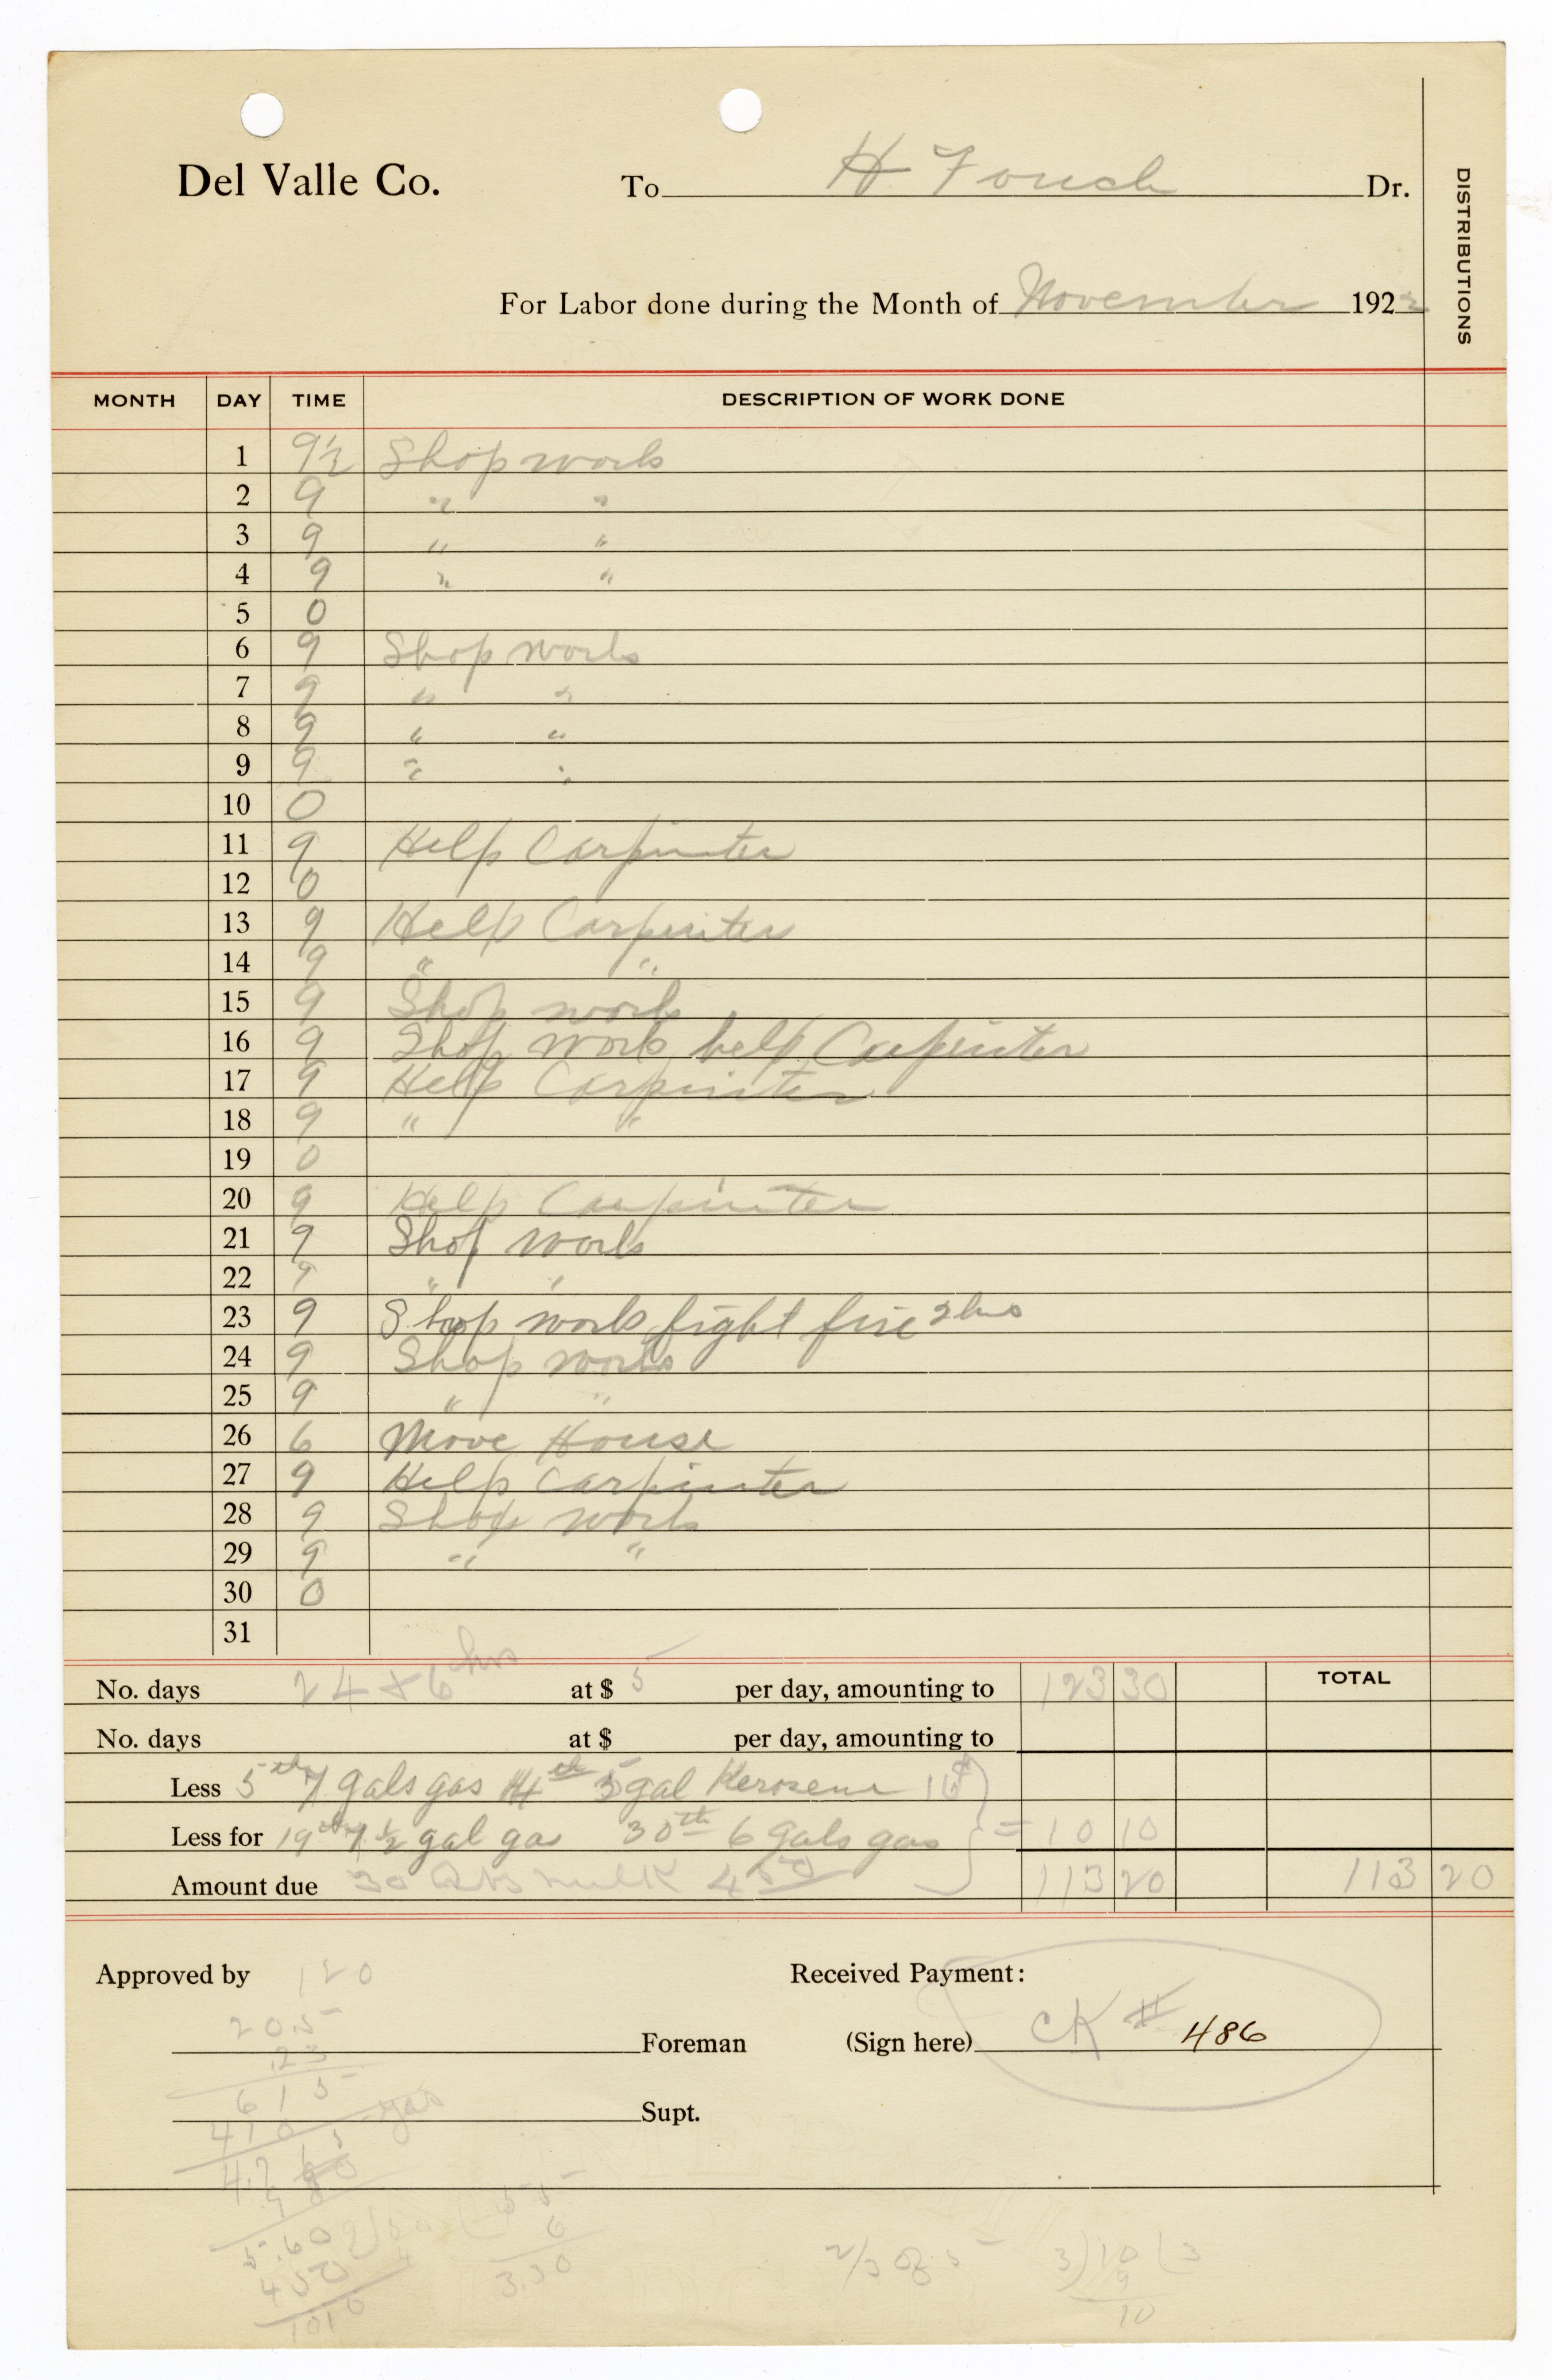 Del Valle Co. To H Fouch Dr.
DISTRIBUTIONS
For Labor done during the Month of November 1922
MONTH DAY TIME DESCRIPTION OF WORK DONE
1 9½ Shop work
2 9 " "
3 9 " "
4 9 " "
5 0
6 9 Shop work
7 9 " "
8 9 " "
9 9 " "
10 0
11 9 Help Carpinter
12 0
13 9 Help Carpinter
14 9 " "
15 9 Shop work
16 9 Shop work help Carpinter
17 9 Help Carpinter
18 9 " "
19 0
20 9 Help Carpinter
21 9 Shop work
22 9 " "
23 9 Shop work fight fire 2 hrs
24 9 Shop work
25 9 " "
26 6 Move House
27 9 Help Carpinter
28 9 Shop work
29 9 " "
30 0
31
No. days 24 + 6 hrs at $ 5 per day, amounting to 123 30 TOTAL
No. days at $ per day, amounting to
Less 5th 7 gals gas 14th 5 gal Kerosene 16¢
Less for 19th 7½ gal gas 30th 6 gals gas = 10 10
Amount due 30 Qts milk 4 50 113 20 113 20
Approved by 120 Received Payment:
20.5
Foreman (Sign here) CK # 486
.23
615
gas
410
Supt.
4.7
5.60
450
1010
55
6
3.30
2/3 of 5
3)10(3
9
10